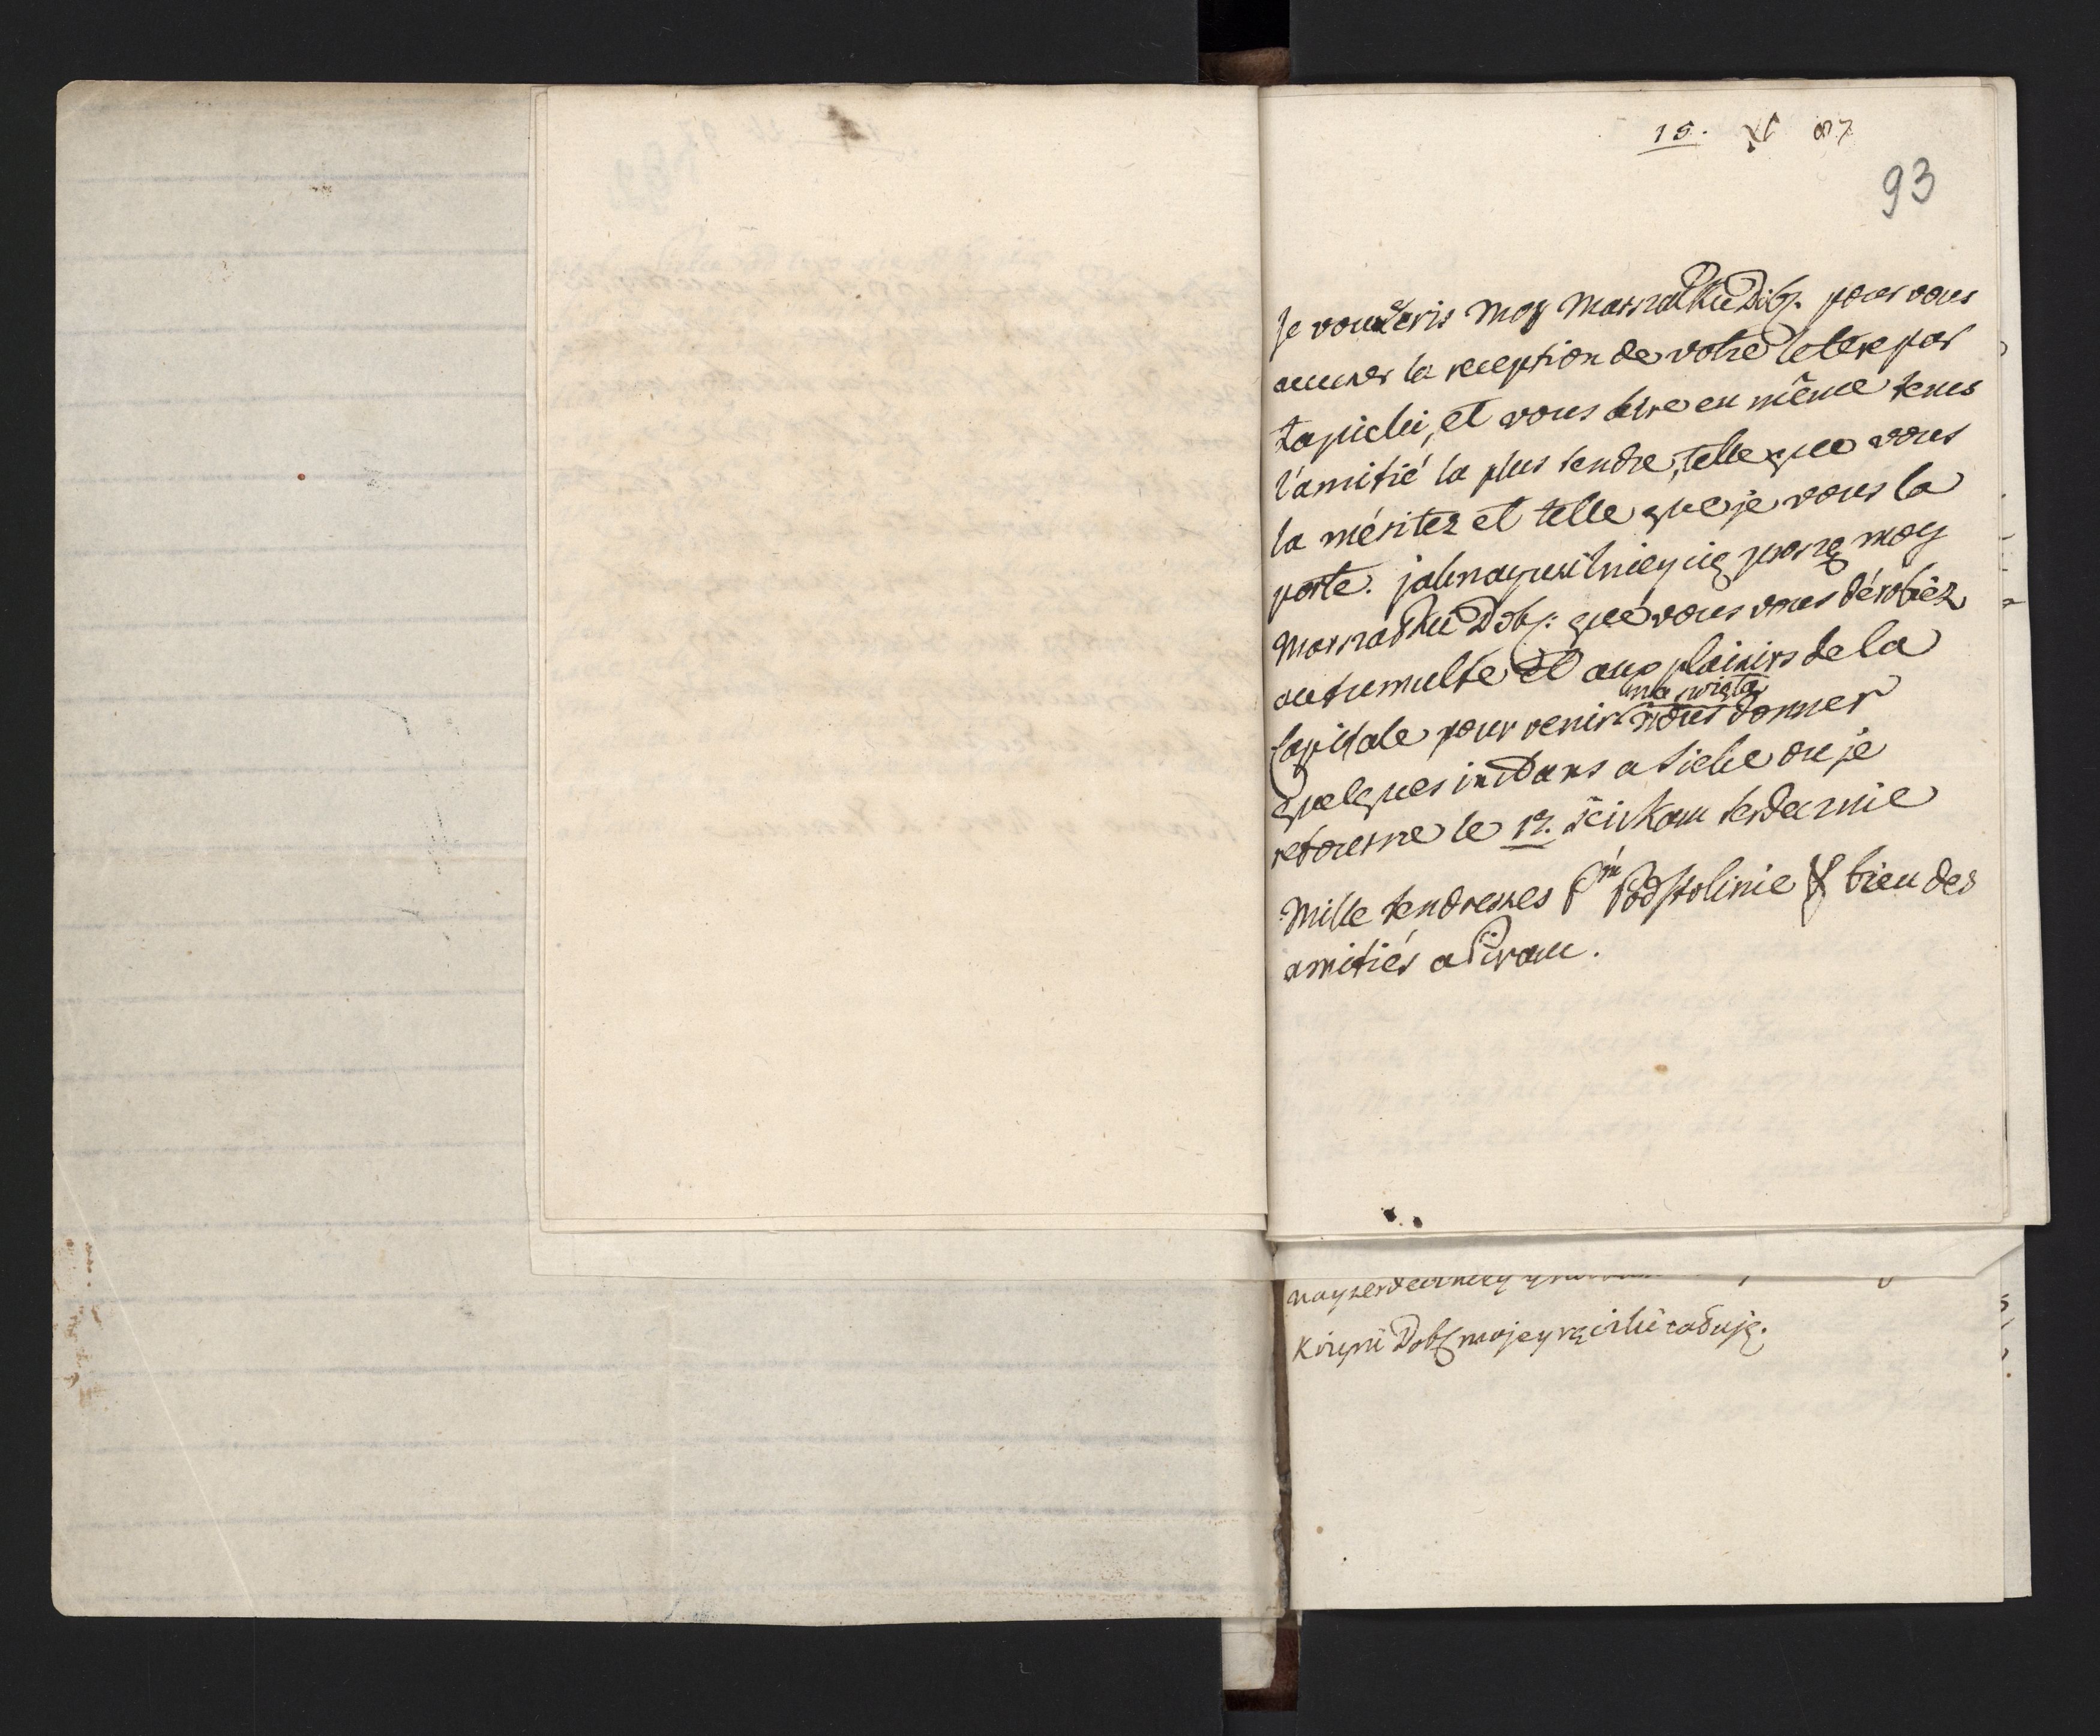 15. XI 87
93
Je vous écris moy Marszałku Dobr. pour vous
accuser la reception de votre lettre par
et vous dire en même tems
l'amitié la plus tendre, telle que vous
la méritez et telle que je vous la
porte. jaknayusilniey cię proszę moy
Marszałku Dobr: que vous vous dérobiez
au tumulte et aux plaisirs de la
na święta
Capitale pour venir nous donner
quelques instans a Siebe ou je
retourne le 17. ściskam serdecznie
Mille tendresses Podstolinie & bien des
amitiés a Piram.
nayserdeczniey
Dobr mojey rączki całuję.